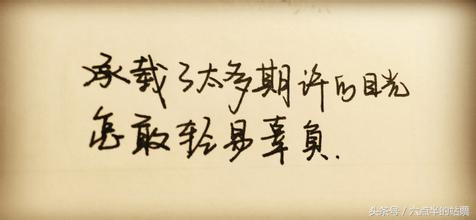 承载了太多期许的目光
怎敢轻易辜负.
头条号/六点半的站票